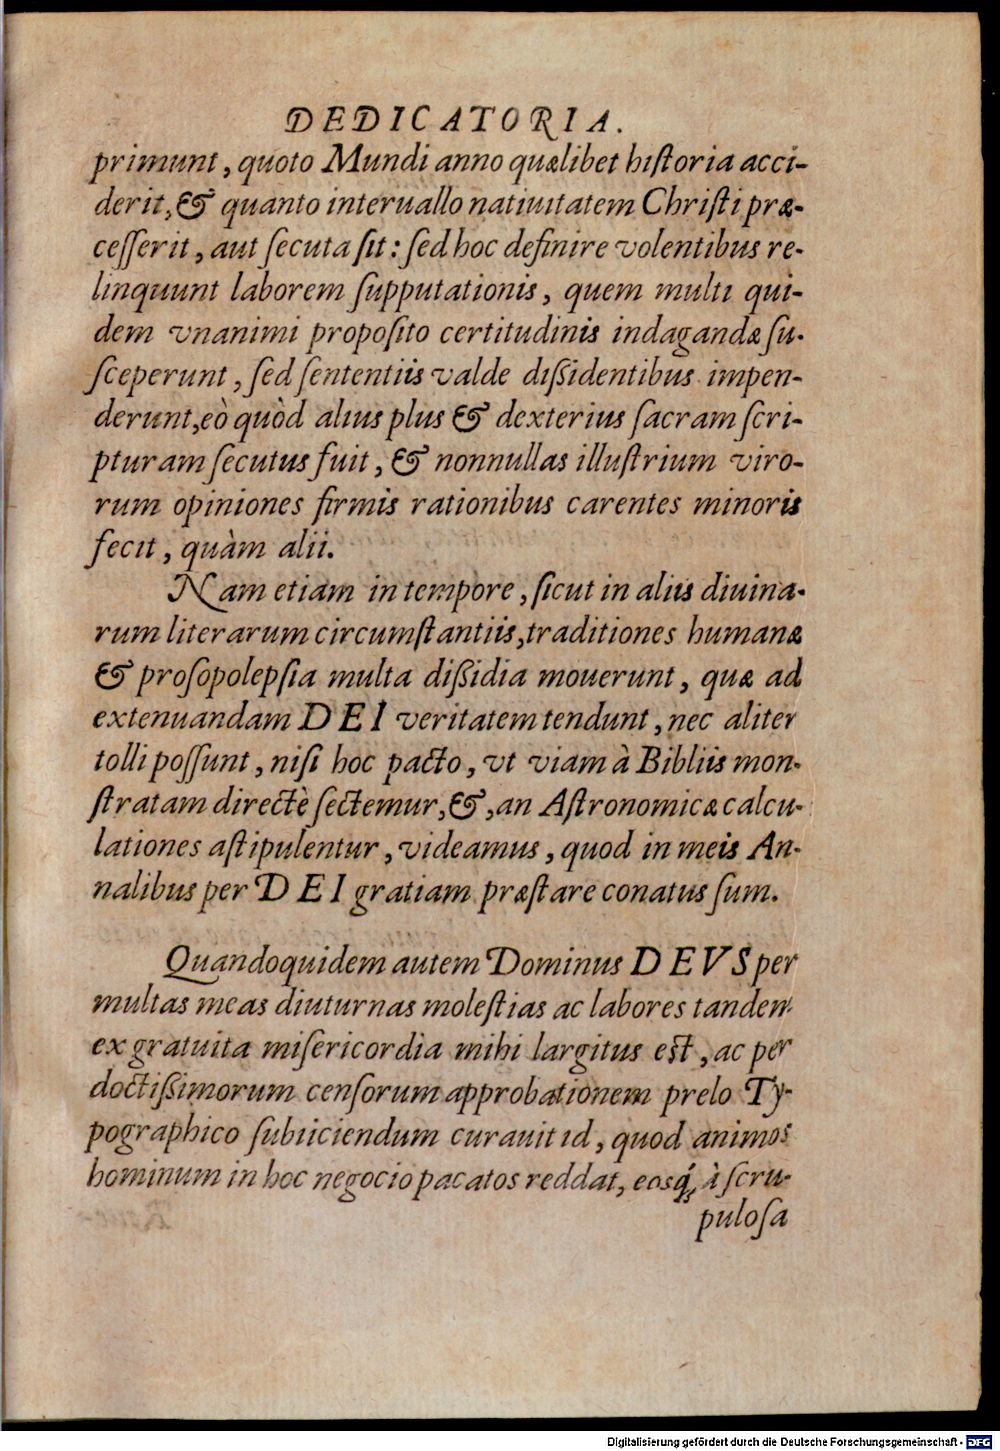 DEDICATORIA.
primunt, quoto Mundi anno quælibet hiſtoria acci-
derit, & quanto interuallo natiuitatem Chriſti præ-
ceſſerit, aut ſecuta ſit: ſed hoc definire volentibus re-
linquunt laborem ſupputationis, quem multi qui-
dem vnanimi propoſito certitudinis indagandæ ſu-
ſceperunt, ſed ſententiis valde diſſidentibus impen-
derunt, eò quòd alius plus & dexterius ſacram ſcri-
pturam ſecutus fuit, & nonnullas illuſtrium viro-
rum opiniones firmis rationibus carentes minoris
fecit, quàm alii.
Nam etiam in tempore, ſicut in aliis diuina-
rum literarum circumſtantiis, traditiones humanæ
& proſopolepſia multa diſſidia mouerunt, quæ ad
extenuandam DEI veritatem tendunt, nec aliter
tolli poſſunt, niſi hoc pacto, vt viam à Bibliis mon-
ſtratam directè ſectemur, &, an Aſtronomicæ calcu-
lationes aſtipulentur, videamus, quod in meis An-
nalibus per DEI gratiam præſtare conatus ſum.
Quandoquidem autem Dominus DEVS per
multas meas diuturnas moleſtias ac labores tandem
ex gratuita miſericordia mihi largitus eſt, ac per
doctiſſimorum cenſorum approbationem prelo Ty-
pographico ſubiiciendum curauit id, quod animos
hominum in hoc negocio pacatos reddat, eosq́; à ſcru-
puloſa
Digitalisierung gefördert durch die Deutsche Forschungsgemeinschaft - DFG